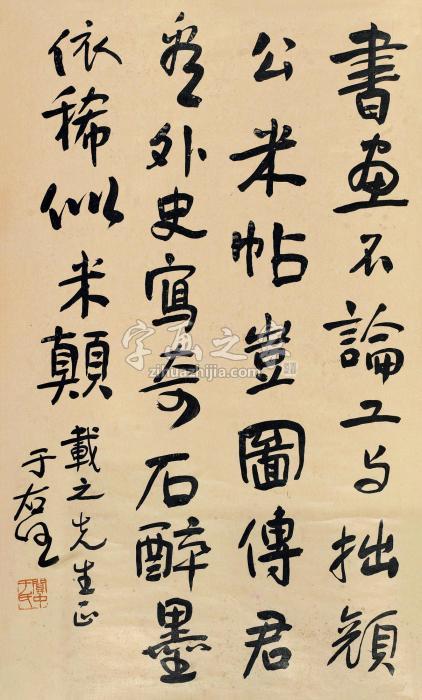 書畫不論工與拙顏
公米帖豈圖傳君
看外史寫奇石醉墨
依稀似米顛
載之先生正
于右任
字画之家
zihuazhijia.com